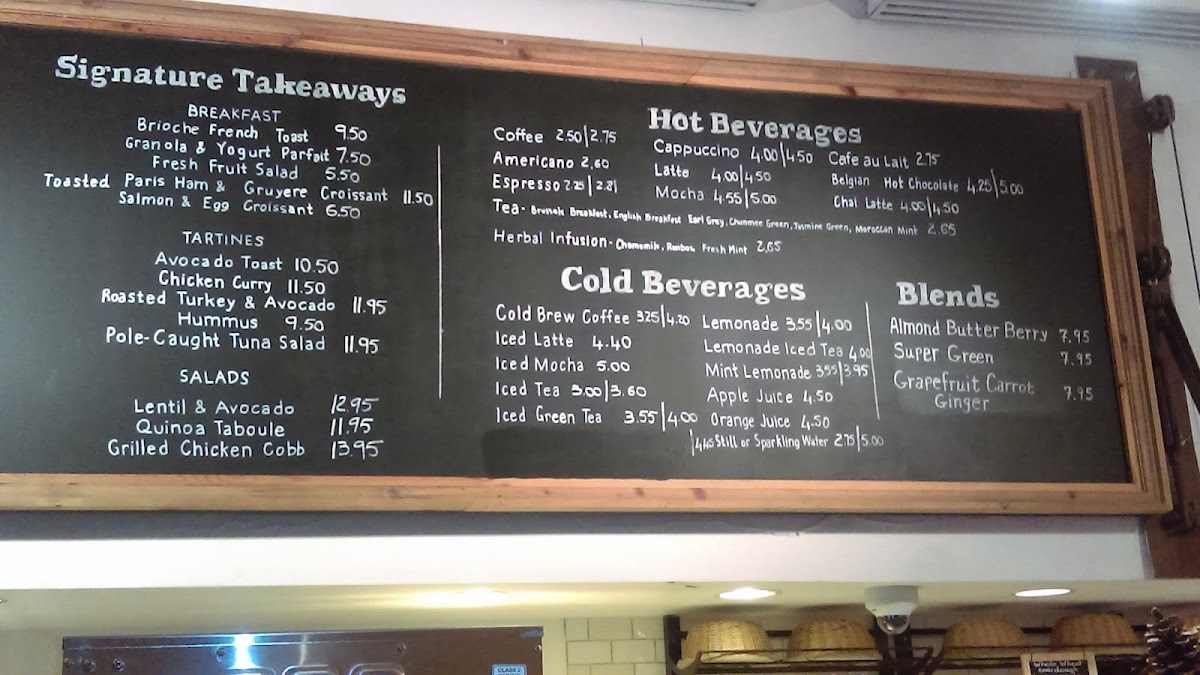 Signature Takeaways
BREAKFAST
Brioche French Toast 9.50
Granola & Yogurt Parfait 7.50
Fresh Fruit Salad 5.50
Toasted Paris Ham & Gruyere Croissant 11.50
Salmon & Egg Croissant 6.50
TARTINES
Avocado Toast 10.50
Chicken Curry 11.50
Roasted Turkey & Avocado 11.95
Hummus 9.50
Pole-Caught Tuna Salad 11.95
SALADS
Lentil & Avocado 12.95
Quinoa Taboule 11.95
Grilled Chicken Cobb 13.95
Hot Beverages
Coffee 2.50|2.75
Americano 2.60
Espresso 2.25|2.81
Cappuccino 4.00|4.50
Latte 4.00|4.50
Mocha 4.55|5.00
Cafe au Lait 2.75
Belgian Hot Chocolate 4.25|5.00
Chai Latte 4.00|4.50
Tea- Brussels Breakfast, English Breakfast Earl Grey, Chunmee Green, Jasmine Green, Moroccan Mint 2.65
Herbal Infusion- Chamomile, Fresh Mint 2.65
Cold Beverages
Cold Brew Coffee 3.25|4.20
Iced Latte 4.40
Iced Mocha 5.00
Iced Tea 3.00|3.60
Iced Green Tea 3.55|4.00
Lemonade 3.55|4.00
Lemonade Iced Tea 4.00
Mint Lemonade 3.55|3.95
Apple Juice 4.50
Orange Juice 4.50
Still or Sparkling Water 2.75|5.00
Blends
Almond Butter Berry 7.95
Super Green 7.95
Grapefruit Carrot
Ginger 7.95
CLASS 2
Whole Wheat
Sourdough